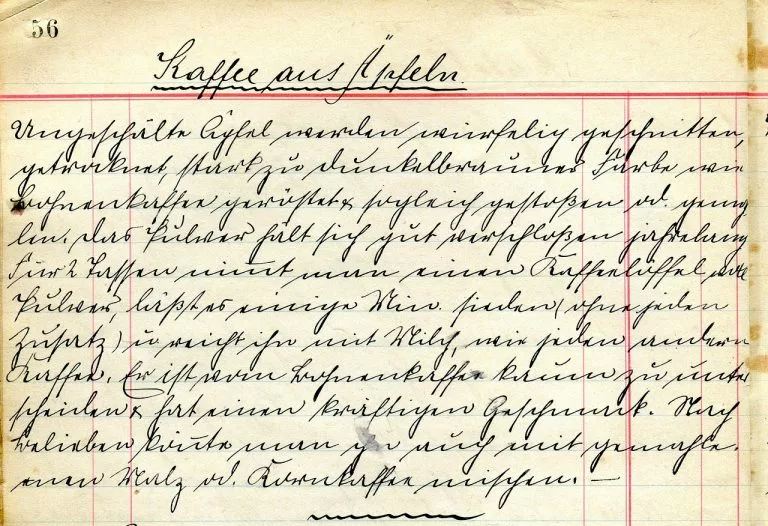 56
Kaffee aus Äpfeln.
Ungeschälte Äpfel werden würfelig geschnitten,
getrocknet, stark zu dunkelbrauner Farbe wie
Bohnenkaffee geröstet & sogleich gestoßen od. gema
len. Das Pulver hält sich gut verschloßen jahrelang
Für 2 Tassen nim̅t man einen Kaffeelöffel voll
Pulver, läßt es einige Min. sieden (ohne jeden
Zusatz) u reicht ihn mit Milch, wie jeden andern
Kaffee. Er ist vom Bohnenkaffee kaum zu unter
scheiden & hat einen kräftigen Geschmack. Nach
Belieben kön̅te man ihn auch mit gemahle.
enen Malz od. Kornkaffee mischen. —